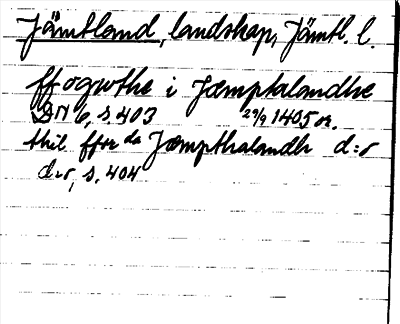 Jämtland, landskap, Jämtl. l.
ffogwthe i Jæmptalandhe
DN 6, s. 403 29/9 1405 or.
thil. ffor da Jæmpthalandh d:o
d:o, s. 404